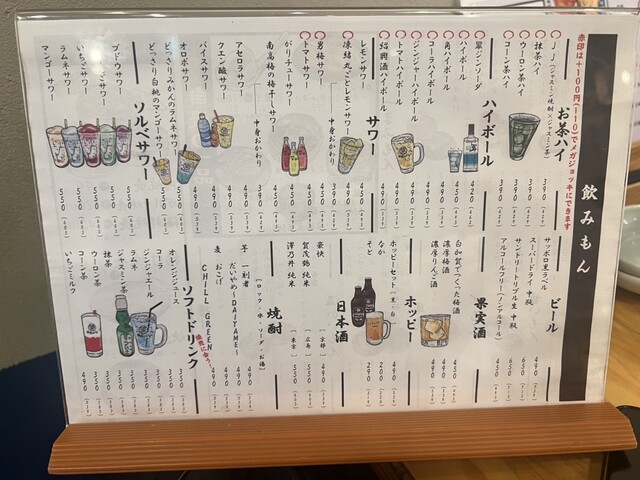 飲みもん
赤印は+100円(110)でメガジョッキにできます
お茶ハイ
JJ(ジャスミン焼酎×ジャスミン茶) 390
抹茶ハイ 390
ウーロン茶ハイ 390
コーン茶ハイ 390
ハイボール
翠ジンソーダ 420
ハイボール 450
角ハイボール 490
コーラハイボール 490
ジンジャーハイボール 490
トマトハイボール 490
紹興酒ハイボール 490
サワー
レモンサワー 450
凍結丸ごとレモンサワー 550
中身おかわり 390
男梅サワー 450
トマトサワー 450
がりチューサワー 450
南高梅の梅干しサワー 450
中身おかわり 390
アセロラサワー 490
クエン酸サワー 490
バイスサワー 490
オロポサワー 550
どっさりみかんのラムネサワー 550
どっさり白桃のマンゴーサワー 550
ソルベサワー
ブドウサワー 550
りんごサワー 550
いちごサワー 550
ラムネサワー 550
マンゴーサワー 550
ビール
サッポロ黒ラベル 490
スーパードライ 中瓶 650
サントリートリプル生 中瓶 650
アルコールフリー(ノンアルコール) 450
果実酒
白加賀でつくった梅酒 450
濃厚梅酒 490
濃厚りんご酒 490
ホッピー
ホッピーセット(黒・白) 490
なか 200
そと 290
日本酒
豪快 (京都) 490
賀茂鶴 純米 (広島) 550
澤乃井 純米 (東京) 550
焼酎
(ロック・水・ソーダ・お湯)
芋 一刻者 490
だいやめ~DAIYAME~ 490
麦 おこげ 490
CHILL GREEN 490
焼売に合う!
ソフトドリンク
オレンジジュース 350
コーラ 350
ジンジャエール 350
ラムネ 350
ジャスミン茶 350
抹茶 350
ウーロン茶 350
コーン茶 350
いちごミルク 490